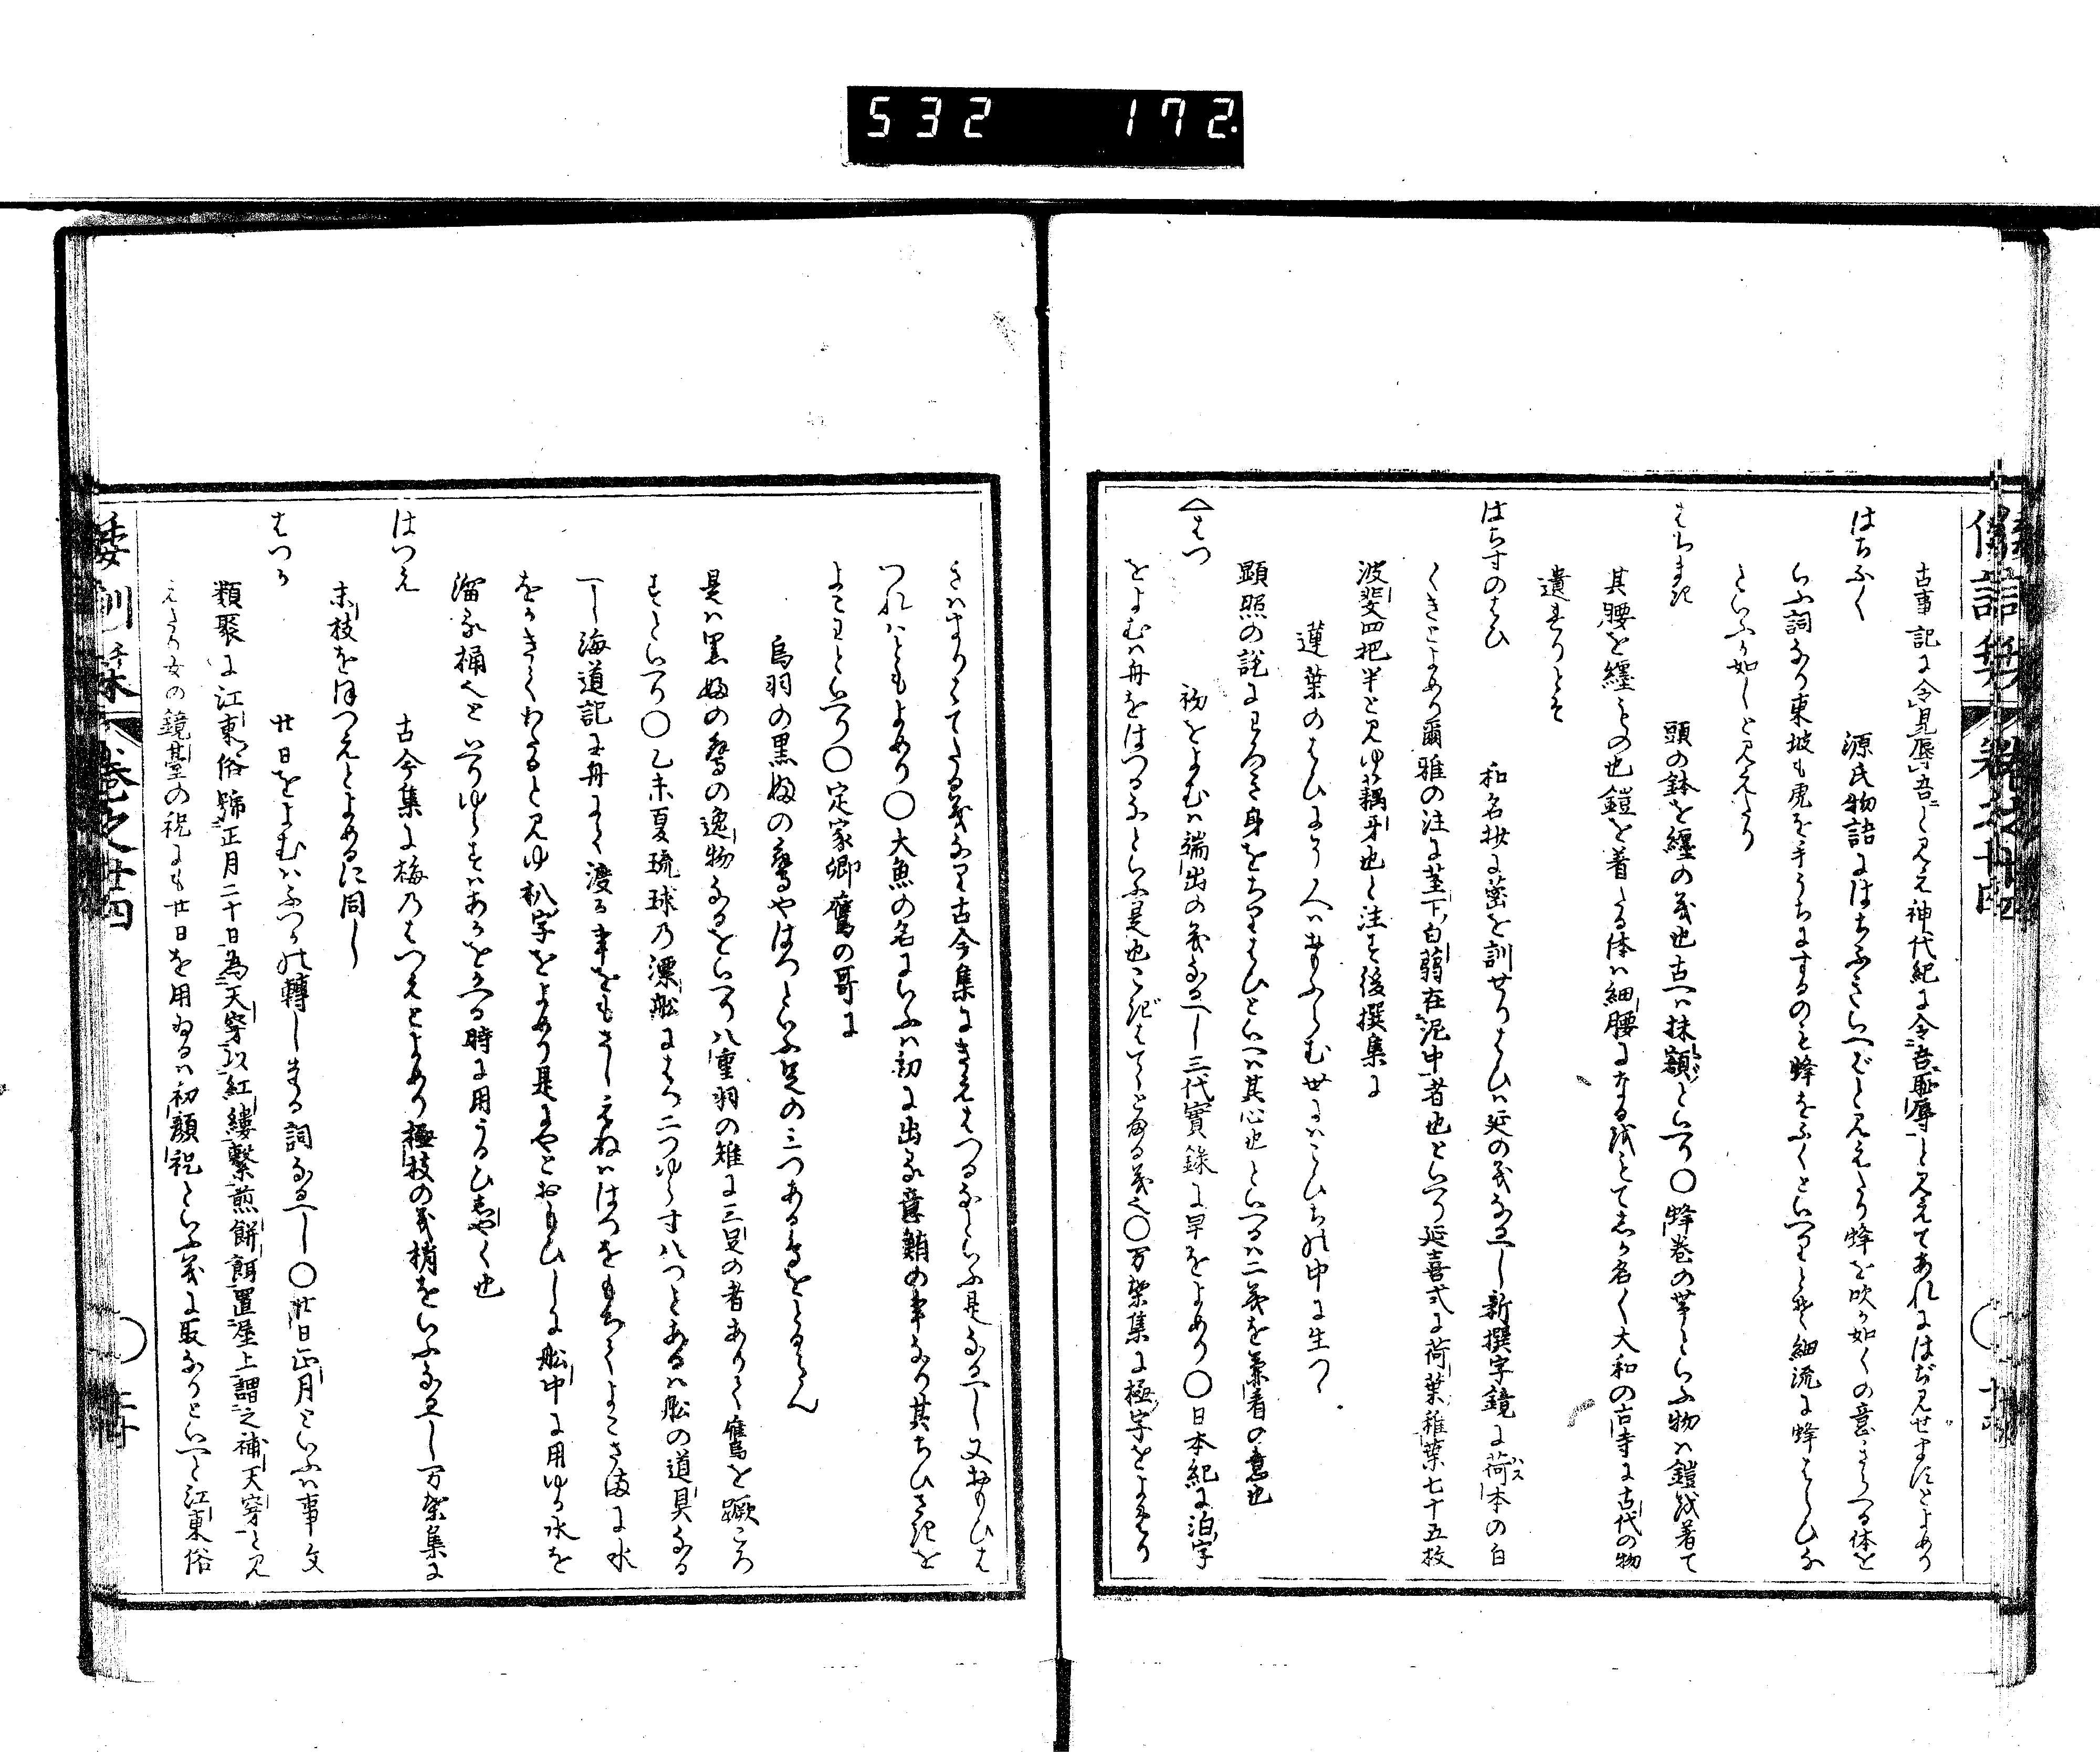 532 172
古事記に令見辱吾と見え神代紀に令吾恥辱と見えてあれにはぢみせましたとよめり
はちふく 源氏物語にはちふきいへどと見えたり蜂を吹か如くの意きらへる体を
いふ詞なり東坡も虎を手うちにするのを蜂をふくといへりとそ細流に蜂はらひな
といふか如しと見えたり
はちまき 頭の鉢を纏の義也古へは抹額といへり○蜂巻の帯といふ物は鎧を着て
其腰を纏ふもの也鎧を着たる体は細腰になるをもてしか名く大和の古寺に古代の物
遺れりとそ
はちすのはひ 和名抄に蔤を訓せりはひは延の義なるへし新撰字鏡に荷本の白
くきとよめり爾雅の注に茎下白蒻在泥中者也といへり延喜式に荷葉稚葉七十五枚
波斐四把半と見ゆ藕牙也と注す後撰集に
蓮葉のはひにそ人はおもふらむ世にはこひちの中に生つゝ
顕照の説にわろき身をちりはひといへは其心也といへるは二義を兼着の意也
はつ 初をよむは端出の義なるへし三代實録に早をよめり○日本紀に泊字
をよむは舟をはつるなといふ是也こぎはてゝとまる義也○万葉集に極字をよめり
きはまりはてたる義なり古今集にきえはつるなといふ是なるへし又おもひは
つれはともよめり○大魚の名にいふは初に出る意鮪の事なり其ちひさきを
よこわといへり○定家卿鷹の哥に
鳥羽の黒ぬの鷹やはつといふ足の三つある鳥をとるらん
是は黒ぬの鷹の逸物なるをいへり八重羽の雉に三足の者ありて鷹を蹶ころ
すといへり○乙未夏琉球の漂船にはつ二つゆすす八つとあるは船の道具なる
へし海道記に舟にて渡る事をもさしえねははつをもちてよこさまに水
をかきてわたると見ゆ朳字をよめり是にやとおもひしに船中に用ゆる水を
溜る桶をといひゆすすはあかをかへる時に用うるひしやく也
はつえ 古今集に梅のはつえとよめり極枝の義梢をいふなるへし万葉集に
末枝をほつえとよめるに同し
はつか 廿日をよむはふつかの轉しまる詞なるへし○廿日正月といふは事文
類聚に江東俗號正月二十日為天穿以紅縷繋煎餅餌置屋上謂之補天穿と見
えたり女の鏡臺の祝にも廿日を用ゐるは初顔祝といふ義に取なりといへと江東俗
倭訓栞 巻之廿四